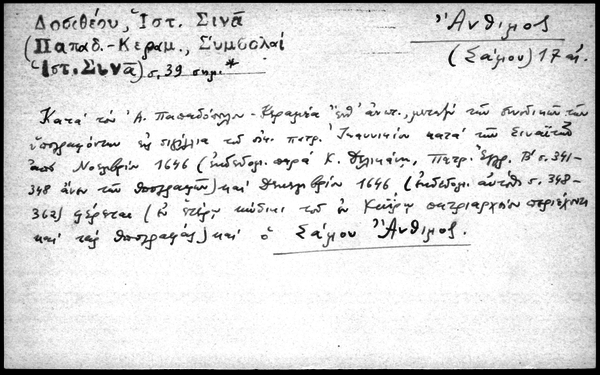 Δοσιθέου, Ἱστ. Σινᾶ
Ἄνθιμος
(Παπαδ.-Κεραμ., Συμβολαί
(Σάμου) 17 αἰ.
Ἱστ. Σινᾶ) σ. 39 σημ.*
Κατά τόν Ἀ. Παπαδόπουλον - Κεραμέα ἔνθ' ἀνωτ., μεταξύ τῶν συνοδικῶν τῶν
ὑπογραφόντων εἰς σιγίλλια τοῦ οἰκ. πατρ. Ἰωαννικίου κατά τῶν Σιναϊτῶν
ἀπό Νοεμβρίου 1646 (ἐκδεδομ. παρά Κ. Δελικάνῃ, Πατρ. Ἔγγρ. Β' σ. 341-
348 ἄνευ τῶν ὑπογραφῶν) καί Δεκεμβρίου 1646, (ἐκδεδομ. αὐτόθι σ. 348-
362) φέρεται (ἐν ἑτέρῳ κώδικι τοῦ ἐν Καΐρῳ πατριαρχείου περιέχοντι
καί τάς ὑπογραφάς) καί ὁ Σάμου Ἄνθιμος.